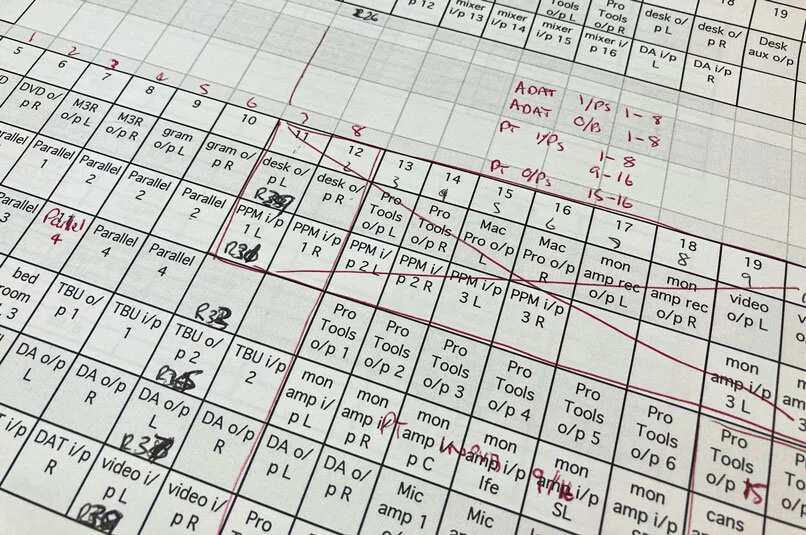 p 12
mixer i/p 13
mixer i/p 14
Tools o/p L
mixer i/p 15
Pro Tools o/p R
mixer i/p 16
desk o/p L
DA i/p L
desk o/p R
DA i/p R
19
Desk aux o/p
ADAT I/Ps 1-8
ADAT O/Ps 1-8
PT I/Ps 1-8
9-16
PT O/Ps 15-16
1 2 3 4 5 6 7 8
5 6 7 8 9 10 11 12 13 14 15 16 17 18 19
3 4 5 6 7 8 9
DVD o/p R
M3R o/p L
M3R o/p R
gram o/p L
gram o/p R
desk o/p L
desk o/p R
Pro Tools o/p L
Pro Tools o/p R
Mac Pro o/p L
Mac Pro o/p R
mon amp rec o/p L
mon amp rec o/p R
video o/p L
Parallel 1
Parallel 2
Parallel 2
Parallel 2
Parallel 2
PPM i/p 1 L
PPM i/p 1 R
PPM i/p 2 L
PPM i/p 2 R
PPM i/p 3 L
PPM i/p 3 R
mon amp i/p 3 L
Parallel 4
Parallel 4
Parallel 4
Pro Tools o/p 1
Pro Tools o/p 2
Pro Tools o/p 3
Pro Tools o/p 4
Pro Tools o/p 5
Pro Tools o/p 6
Pro Tools o/p 15
TBU o/p 1
TBU i/p 1
TBU o/p 2
TBU i/p 2
mon amp i/p L
mon amp i/p R
mon amp i/p C
mon amp i/p lfe
mon amp i/p SL
mon amp i/p
cans
DA o/p L
DA o/p R
DA o/p L
DA o/p R
DA o/p L
DA o/p R
Mic amp 1
Mic
DAT i/p R
video i/p L
video i/p R
Pro